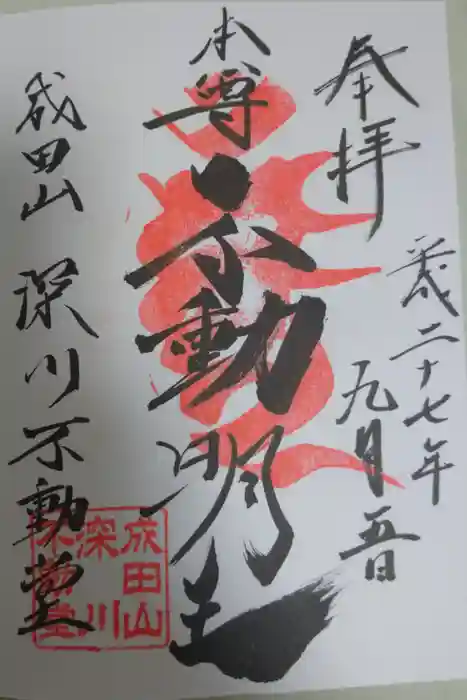 奉拝
平成二十七年
九月五日
本尊
不動明王
成田山 深川不動堂
成田山
深川
不動堂